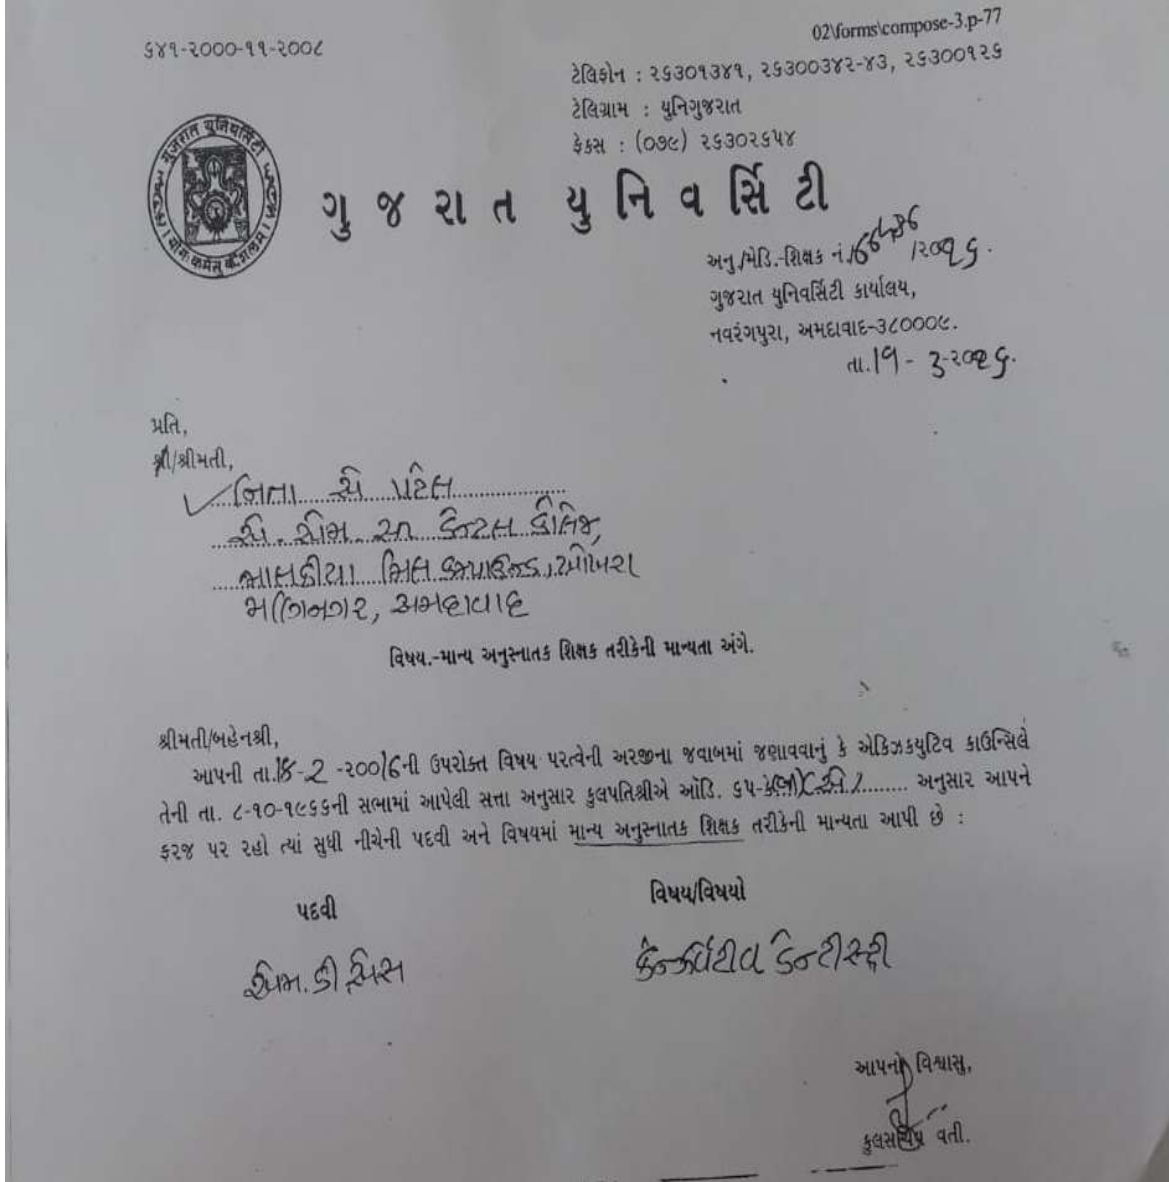 ૬૪૧-૨૦૦૦-૧૧-૨૦૦૮
02\forms\compose-3.p-77
ટેલિફોન : ૨૬૩૦૧૩૪૧, ૨૬૩૦૦૩૪૨-૪૩, ૨૬૩૦૦૧૨૬
ટેલિગ્રામ : યુનિગુજરાત
ફેકસ : (૦૭૯) ૨૬૩૦૨૬૫૪
ગુજરાત યુનિવર્સિટી
ગુજરાત યુનિવર્સિટી
અનુ./મેડિ.-શિક્ષક નં./
ગુજરાત યુનિવર્સિટી કાર્યાલય,
નવરંગપુરા, અમદાવાદ-૩૮૦૦૦૯.
તા.
પ્રતિ,
શ્રી/શ્રીમતી,
પટેલ
ડેન્ટલ કોલેજ,
મિલ કમ્પાઉન્ડ, ખોખરા
મણિનગર, અમદાવાદ
વિષય.-માન્ય અનુસ્નાતક શિક્ષક તરીકેની માન્યતા અંગે.
શ્રીમતી/બહેનશ્રી,
આપની તા. ની ઉપરોક્ત વિષય પરત્વેની અરજીના જવાબમાં જણાવવાનું કે એકિઝક્યુટિવ કાઉન્સિલે
તેની તા. ૮-૧૦-૧૯૬૬ની સભામાં આપેલી સત્તા અનુસાર કુલપતિશ્રીએ ઑડિ. ૬૫- ........ અનુસાર આપને
ફરજ પર રહો ત્યાં સુધી નીચેની પદવી અને વિષયમાં માન્ય અનુસ્નાતક શિક્ષક તરીકેની માન્યતા આપી છે :
પદવી
વિષય/વિષયો
એમ.ડી.એસ
ડેન્ટીસ્ટ્રી
આપનો વિશ્વાસુ,
કુલસચિવ વતી.